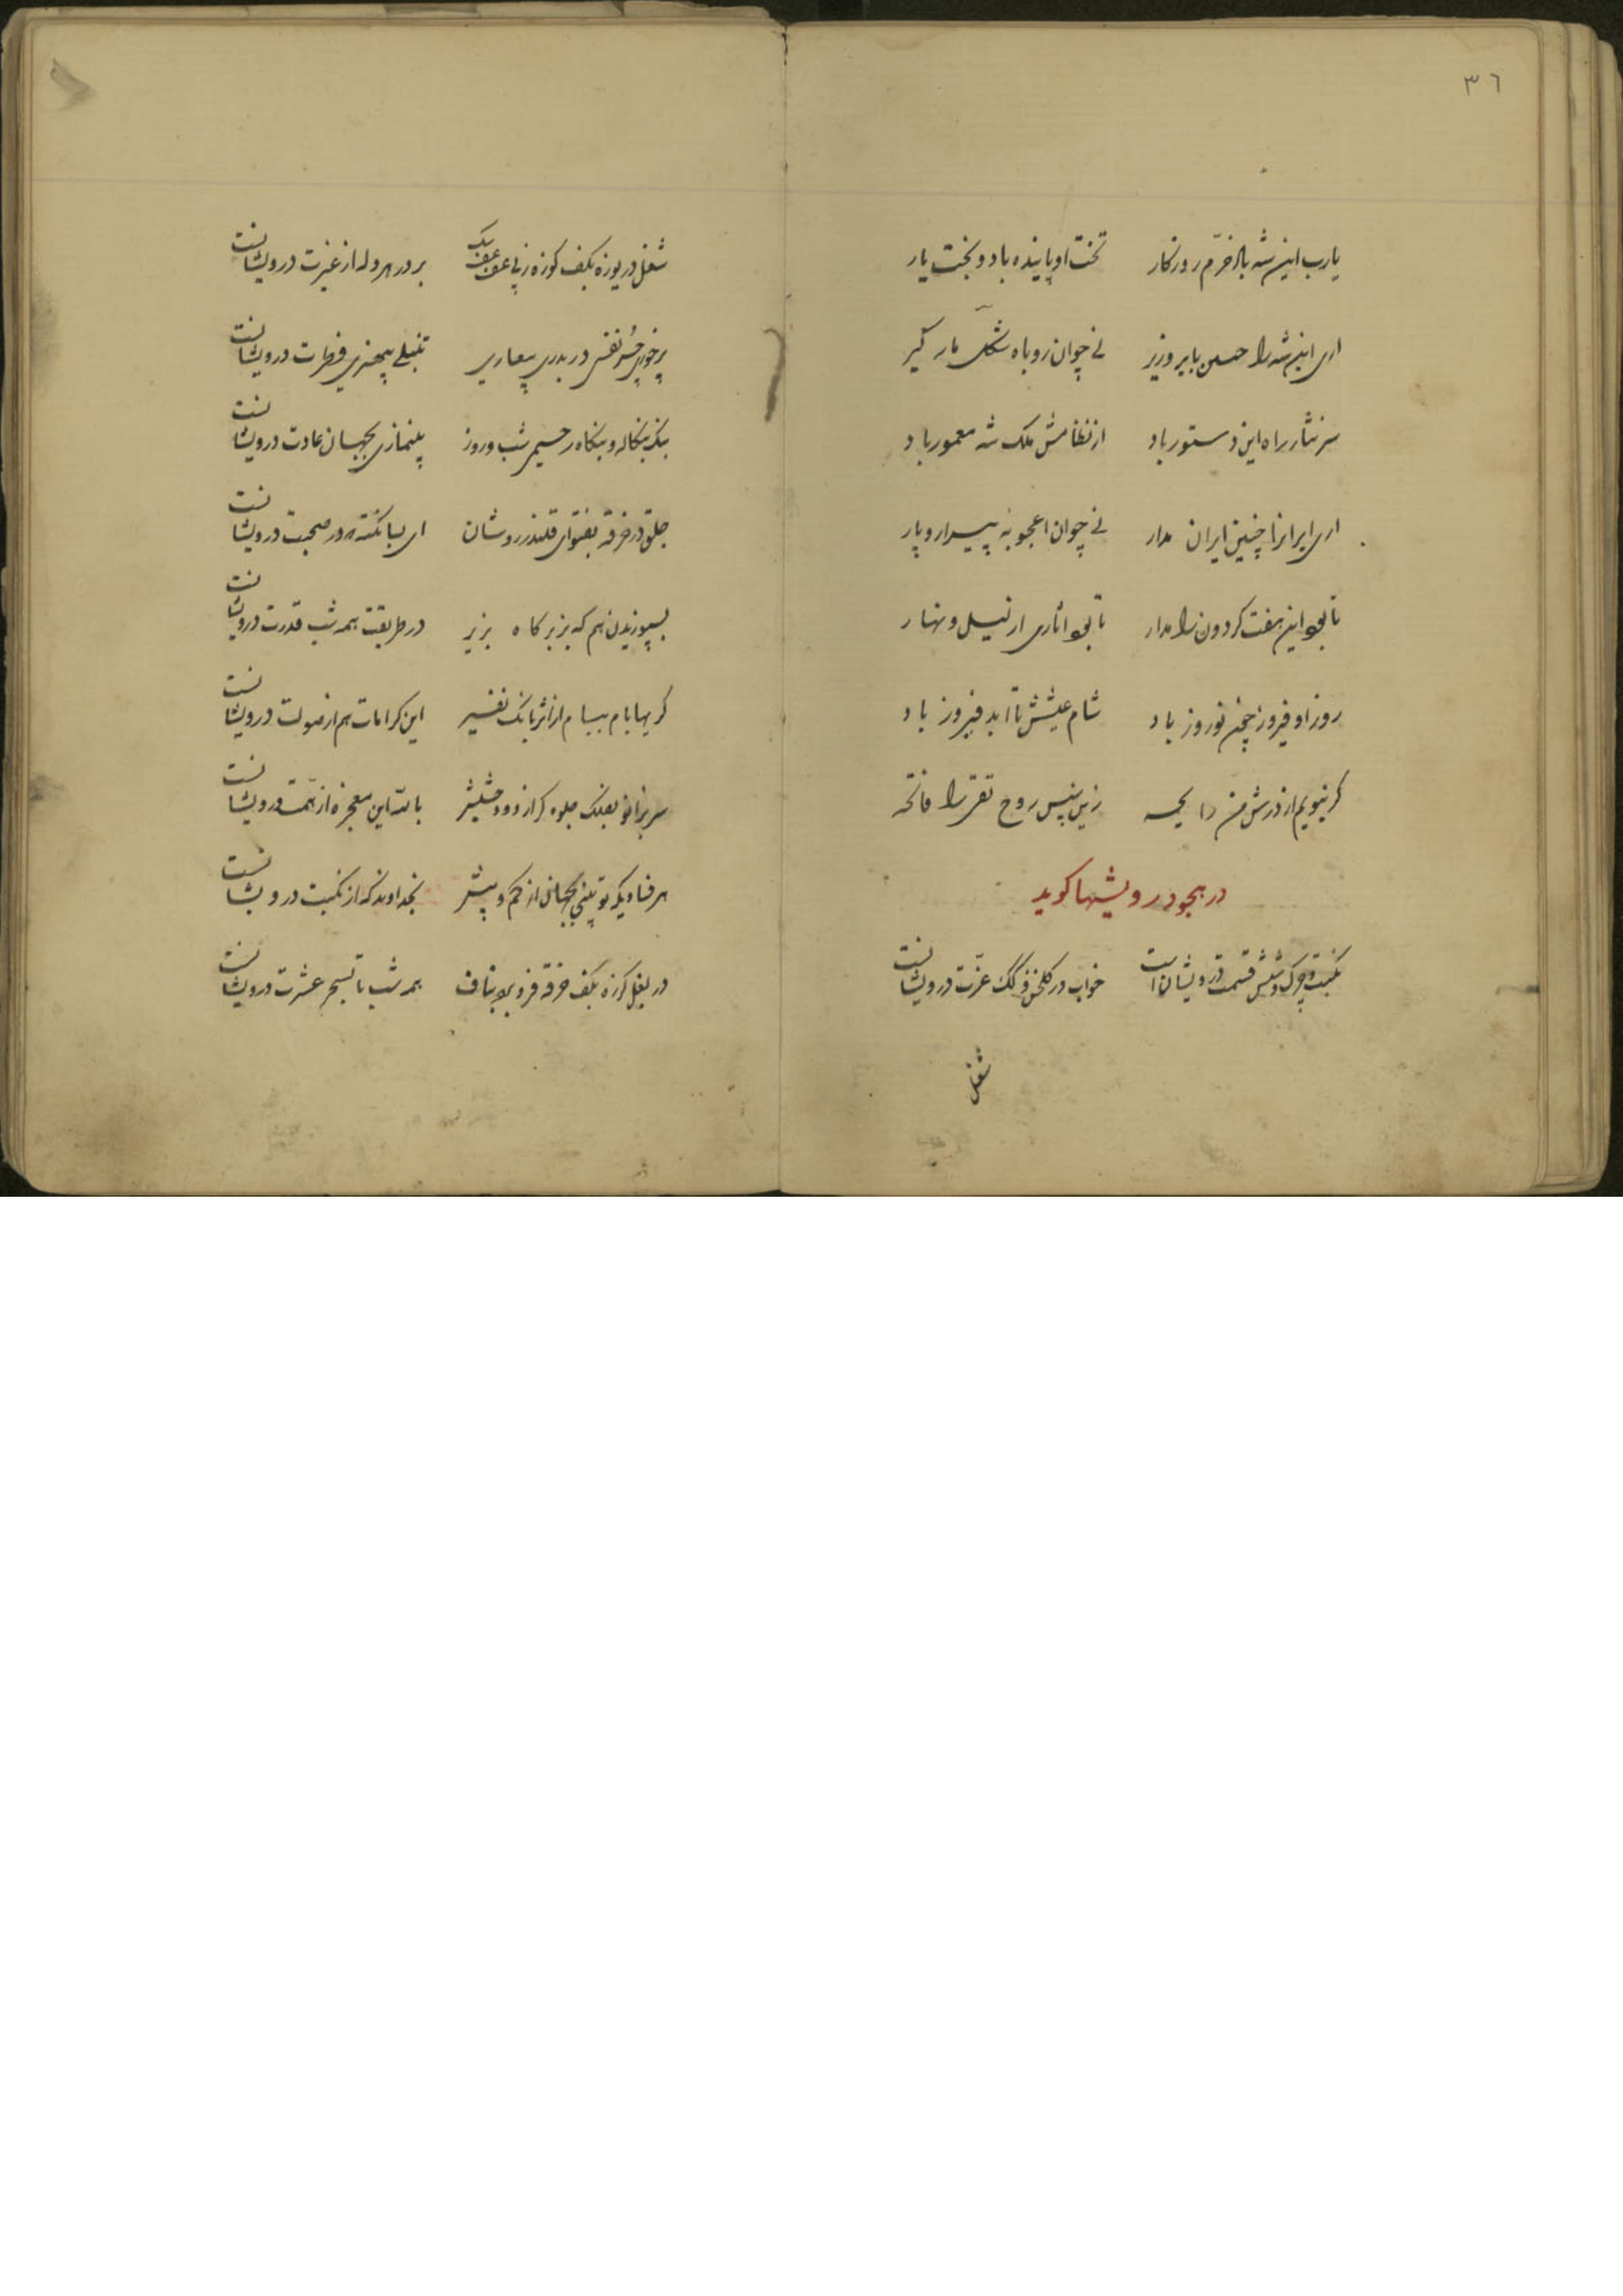 ٣٦
یارب این شه باد خرّم روزکار تخت او پاینده باد و بخت یار
ای این شه را حسین باید وزیر نی چوان روباه شکل مار کیر
سر نثار راه این دستور باد از نظامش ملک شه معمور باد
ای ایرانرا چنین ایران مدار نی چوان اعجوبه پیرار و پار
تا بجو این هفت کردون را مدار تا بجو اثاری از لیل و نهار
روز او فیروز چون نوروز باد شام عیشش تا ابد فیروز باد
کر نیویم از درش من رایحه زین سپس روح تقی را فاتحه
در هجو درویشها کوید
نکبت و چرک و شپش قسمت درویشان است خواب در کلخن و کنک عزّت درویشانست
شغل
شغل دریوزه بکف کوزه زپی عف عف سک بر در هر وله از غیرت درویشانست
پرخوری خُر نفسی دربدری بیعاری تنبلی بیهنری فطرت درویشانست
بنک بنکاله و بنکاه رحیمی شب و روز بینمازی بجهان عادت درویشانست
جلق در خرقه بفتوای قلندر روشان ای بسا نکته که در صحبت درویشانست
بسپوزیدن هم که بزبر کاه بزیر در طریقت همه شب قدرت درویشانست
کر بها بام ببام از اثر بانک نفیر این کرامات هم از صولت درویشانست
سر بزانو بفلک جلوه کر از دود حشیش بالله این معجزه از همّت درویشانست
هر فسادیکه تو بینی بجهان از کم و بیش بخداوند که از نکبت درویشانست
در بغل کرزه بکف خرقه فرو برده بناف همه شب تا بسحر عشرت درویشانست